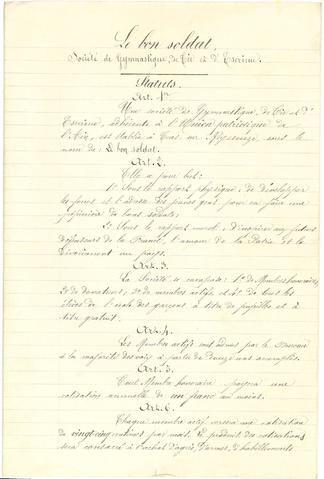 Le bon soldat,
Société de Gymnastique, de Tir et d'Escrime.
Statuts.
Art. 1er
Une société de Gymnastique, de Tir et d'
Escrime, adhérente à l'Union patriotique de
l'Ain, est établie à sous le
nom de: Le bon soldat.
Art. 2.
Elle a pour but:
1º Sous le rapport physique, de développer
les forces et l'adresse des jeunes gens pour en faire une
pépinière de bons soldats;
2º Sous le rapport moral, d'inspirer aux futurs
défenseurs de la France, l'amour de la Patrie et le
dévouement au pays.
Art. 3.
La Société se compose: 1º de Membres honoraires,
2º de donateurs, 3º de membres actifs et 4º de tous les
élèves de l'école des garçons à titre de pupilles et à
titre gratuit.
Art. 4.
Les Membres actifs sont admis par le Bureau
à la majorité des voix à partir de ans accomplis.
Art. 5.
Tout Membre honoraire payera une
cotisation annuelle de un franc au moins.
Art. 6.
Chaque membre actif versera une cotisation
de vingt-cinq centimes par mois. Le produit des cotisations
sera consacré à l'achat d'agrès, d'armes, d'habillements